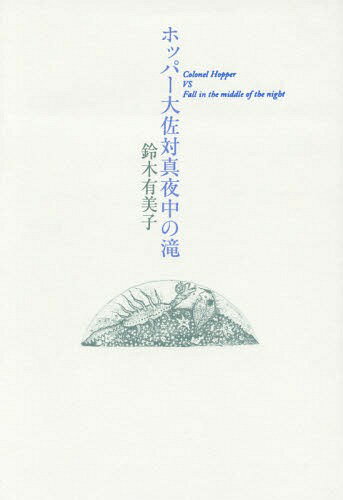 ホッパー大佐対真夜中の滝
Colonel Hopper
VS
Fall in the middle of the night
鈴木有美子